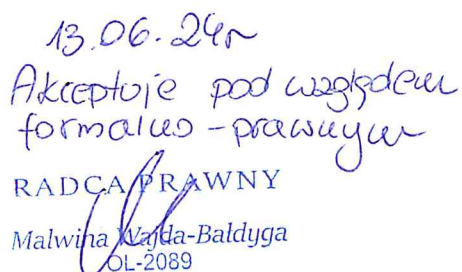 13.06.24r
Akceptuje pod względem
formalno-prawnym
RADCA PRAWNY
Malwina Wajda-Bałdyga
OL-2089